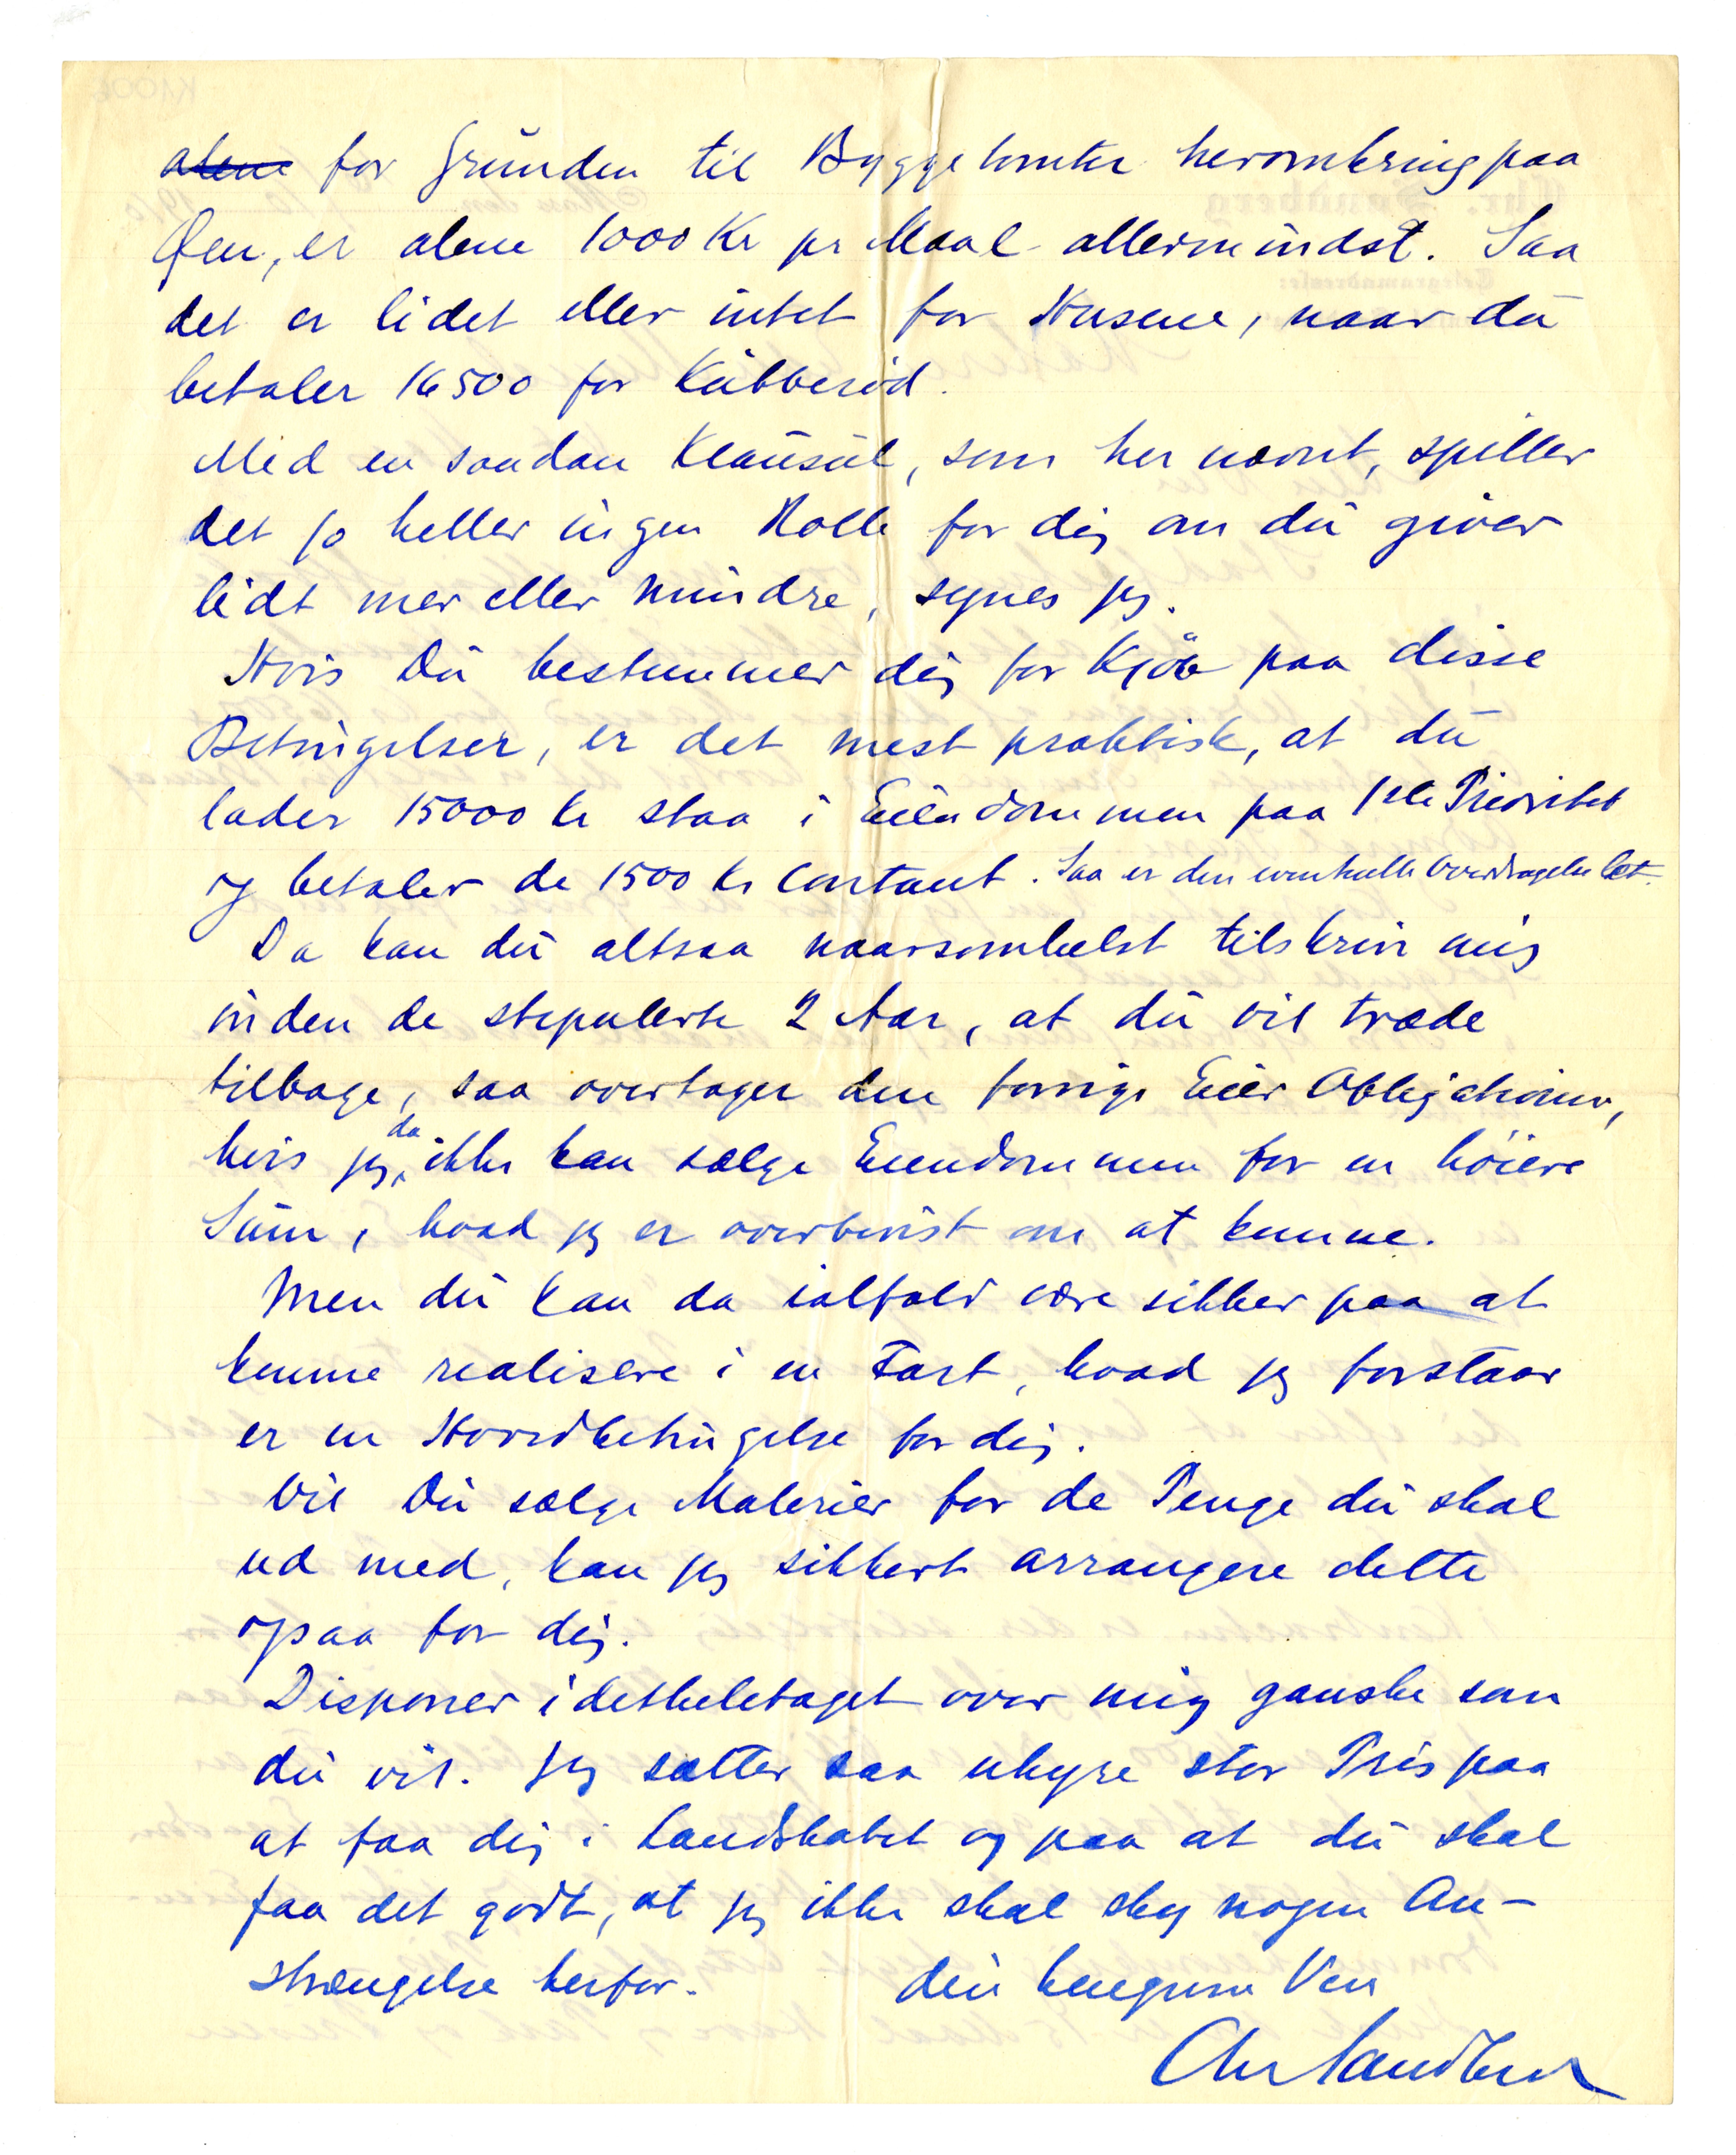 alene for Grunden til Byggetomter heromkring paa
Øen, er alene 1000 Kr pr Maal allermindst. Saa
det er lidet eller intet for Husene, naar du
betaler 16500 for Kubberød.
Med en saadan Klausul, som her nævnt, spiller
det jo heller ingen Rolle for dig om du giver
lidt mer eller mindre, synes jeg.
Hvis Du bestemmer dig for Kjøb paa disse
Betingelser, er det mest praktisk, at du
lader 15000 kr staa i Eiendommen paa 1ste Prioritet
og betaler de 1500 kr contant. Saa er den eventuelle Overdragelse let.
Da kan du altsaa naarsomhelst tilskriv mig
inden de stipulerte 2 Aar, at du vil træde
tilbage, saa overtager den forrige Eier Obligationen,
hvis jeg da ikke kan sælge Eiendommen for en høiere
Sum, hvad jeg er overbevist om at kunne.
Men du kan da ialfald være sikker paa at
kunne realisere i en Fart, hvad jeg forstaar
er en Hovedbetingelse for dig.
Vil Du sælge Malerier for de Penge du skal
ud med, kan jeg sikkert arrangere dette
ogsaa for dig.
Disponer idetheletaget over mig ganske som
du vil. Jeg sætter saa uhyre stor Pris paa
at faa dig i Landskabet og paa at du skal
faa det godt, at jeg ikke skal sky nogen An-
strængelse herfor. din hengivne Ven
Chr Sandberg